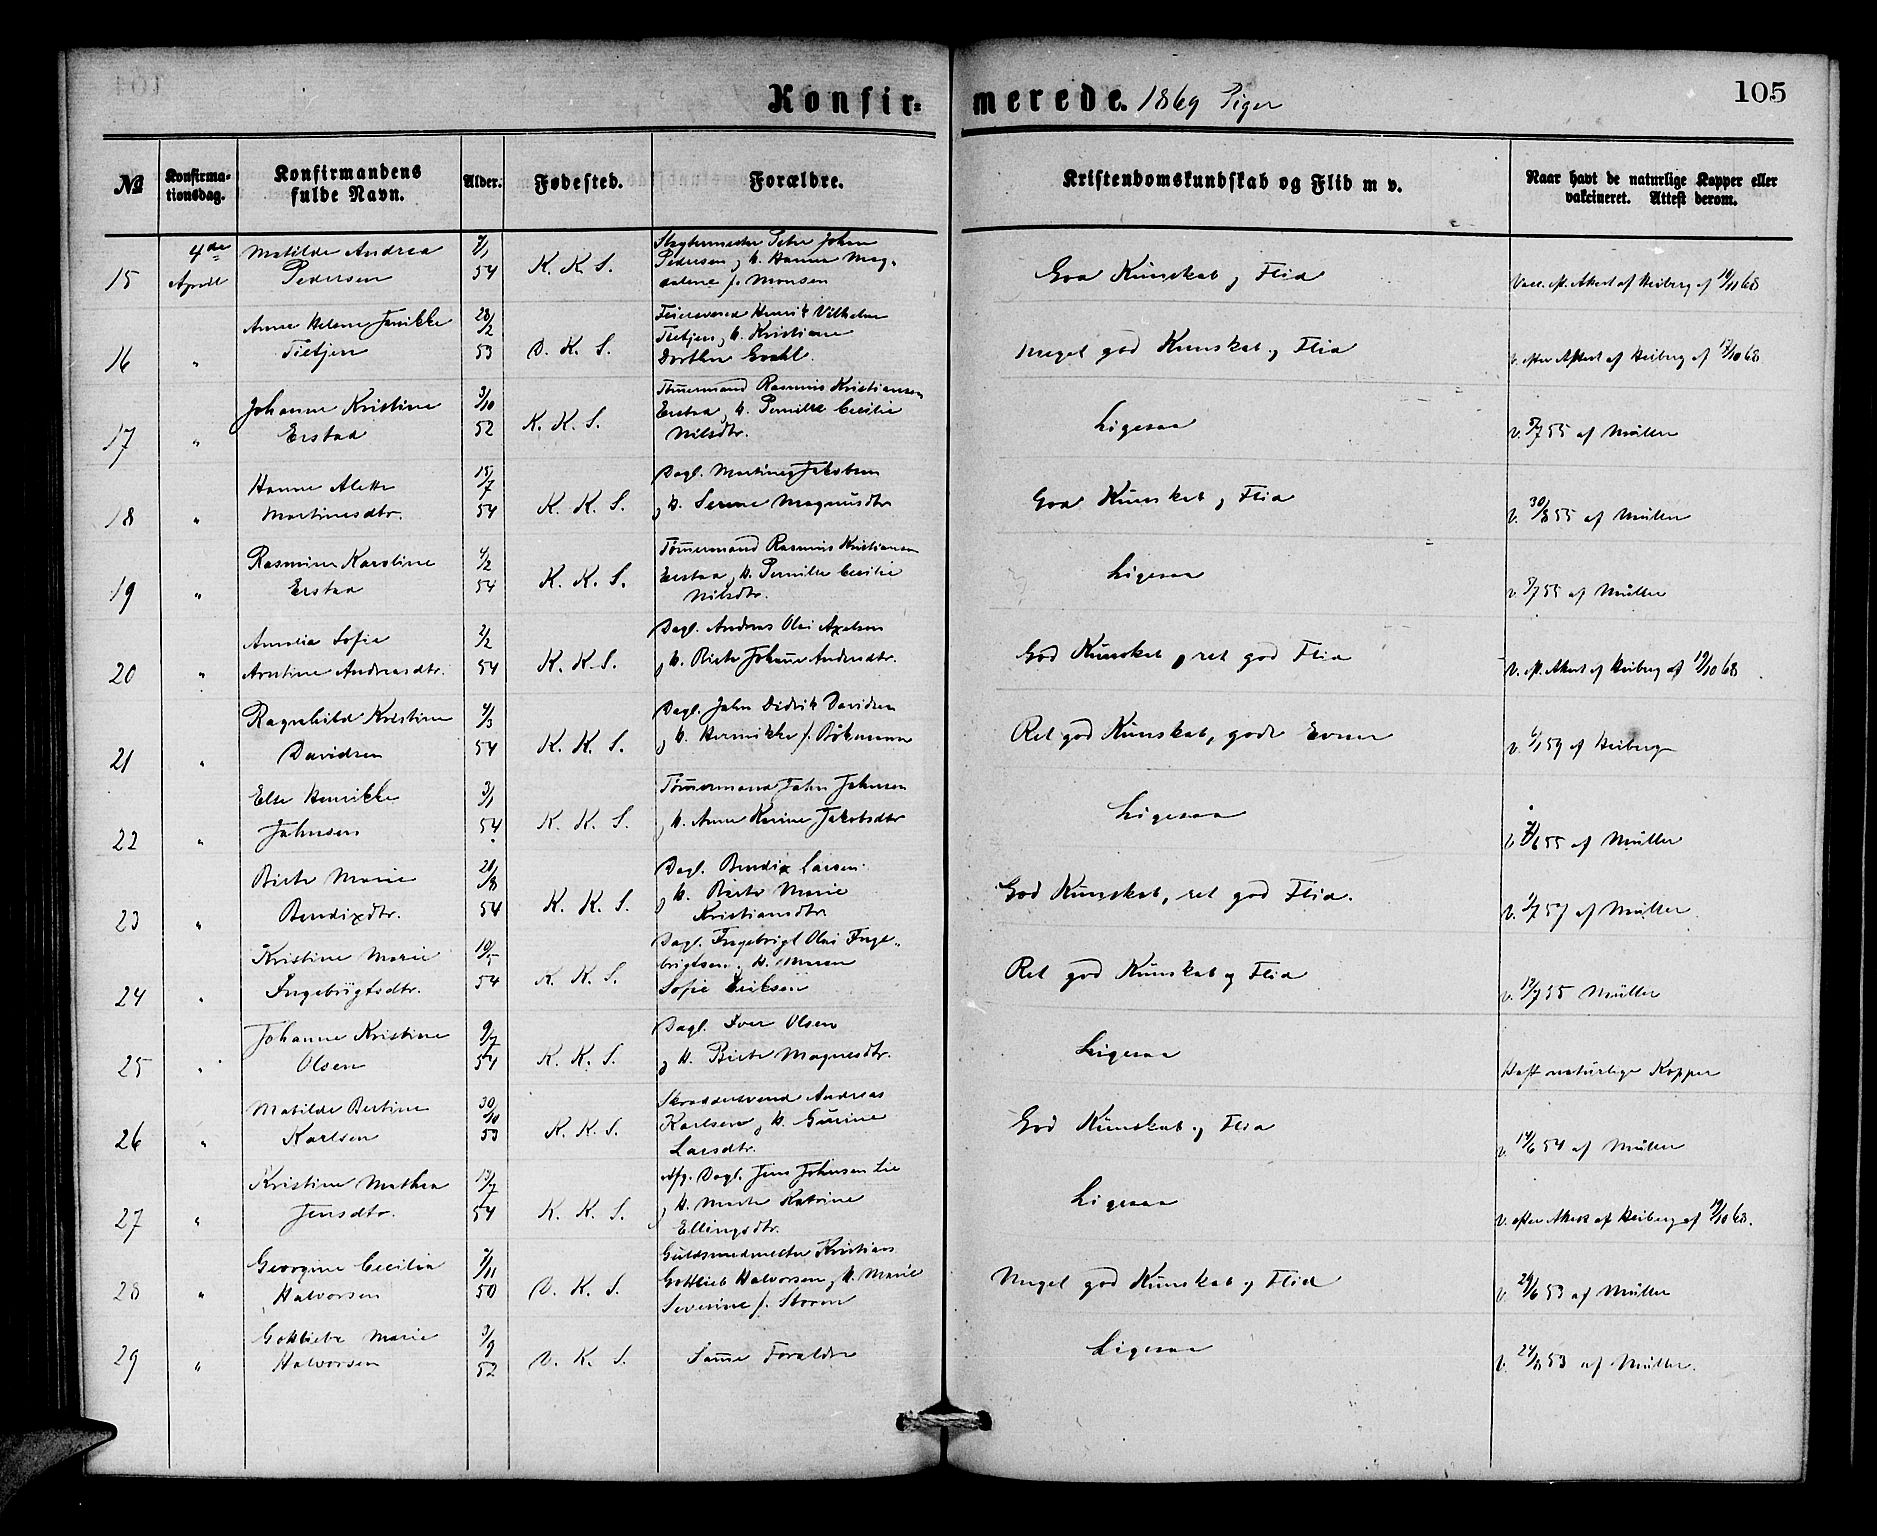 Konfir= merede. 1869 Piger 105
№ Konfirma-tionsdag. Konfirmandens fulde Navn. Alder. Fødested. Forældre. Kristendomskundskab og Flid m v. Naar havt de naturlige Kopper eller vakcineret. Attest derom.
15 4de April Matilde Andrea Pedersen 7/1 54 K. K. S. Slagtermester Peter Johan Pedersen og H. Hanna Magdalene f. Monsen God Kunskab og Flid Vacc. eft. Attest af Heiberg af 10/11 68
16 " Anne Helene Jenikke Tietjen 28/2 53 D. K. S. Feiersvend Henrik Vilhelm Tietjen og H. Kristiane Dorthea Meget god Kunskab og Flid v. efter Attest af Heiberg af 12/10 68
17 " Johanne Kristine Erstad 3/10 52 K. K. S. Tømmermand Rasmus Kristiansen Erstad og H. Pernille Cecilie Nilsdtr. Ligesaa v. 5/7 55 af Müller
18 " Hanne Alette Martinesdtr. 15/7 54 K. K. S. Dagl. Martines Jakobsen og H. Serene Magnusdtr God Kunskab og Flid v. 30/8 55 af Müller
19 " Rasmine Karoline Erstad 4/2 54 K. K. S. Tømmermand Rasmus Kristiansen Erstad og H. Pernille Cecilie Nilsdtr. Ligesaa v. 5/7 55 af Müller
20 " Amalia Sofie Andreasdtr. 2/2 54 K. K. S. Dagl. Andreas Olai Axelsen og H. Birte Johanne Andersdtr. God Kunskab, ret god Flid v. eft. Attest af Heiberg af 19/10 68
21 " Ragnhild Kristine Davidsen 4/3 54 K. K. S. Dagl. John Didrik Davidsen og H. Henrikke f. Ret god Kunskab, gode Evner v. 6/1 59 af Heiberg
22 " Else Henrikke Johnsen 3/1 54 K. K. S. Tømmermand John Johnsen og H. Anne Karine Jakobsdtr Ligesaa v. /6 55 af Müller
23 " Birte Marie Bendixdtr. 21/8 54 K. K. S. Dagl. Bendix Larsen og H. Birte Marie Kristiansdtr God Kunskab, ret god Flid. v. 2/7 57 af Müller
24 " Kristine Marie Ingebrigtsdtr. 10/5 54 K. K. S. Dagl. Ingebrigt Olai Ingebrigtsen og H. Maren Sofie Eriksen Ret god Kunskab og Flid v. 12/7 55 Müller
25 " Johanne Kristine Olsen 9/7 54 K. K. S. Dagl. Iver Olsen og H. Birte Magnesdtr. Ligesaa Haft naturlige Kopper
26 " Matilde Bertine Karlsen 30/10 53 K. K. S. Skræddersvend Andreas Karlsen og H. Gurine Larsdtr. God Kunskab og Flid v. 14/6 54 af Müller
27 " Kristine Mathea Jensdtr. 13/7 54 K. K. S. Afg. Dagl. Jens Johnsen Lie og H. Marte Katrine Ellingsdtr. Ligesaa v. efter Attest af Heiberg af 19/10 68.
28 " Georgine Cecilia Halvorsen 7/11 50 D. K. S. Guldsmedmester Kristians Gottlieb Halvorsen og H. Marie Severine f. Storm Meget god Kunskab og Flid v. 29/6 53 af Müller
29 " Gottliebe Marie Halvorsen 3/9 52 D. K. S. Samme Forældre Ligesaa v. 24/8 53 af Müller.